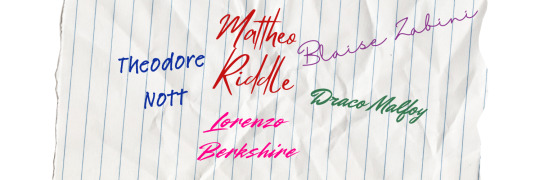 Theodore
Nott
Mattheo
Riddle
Blaise Zabini
Lorenzo
Berkshire
Draco Malfoy